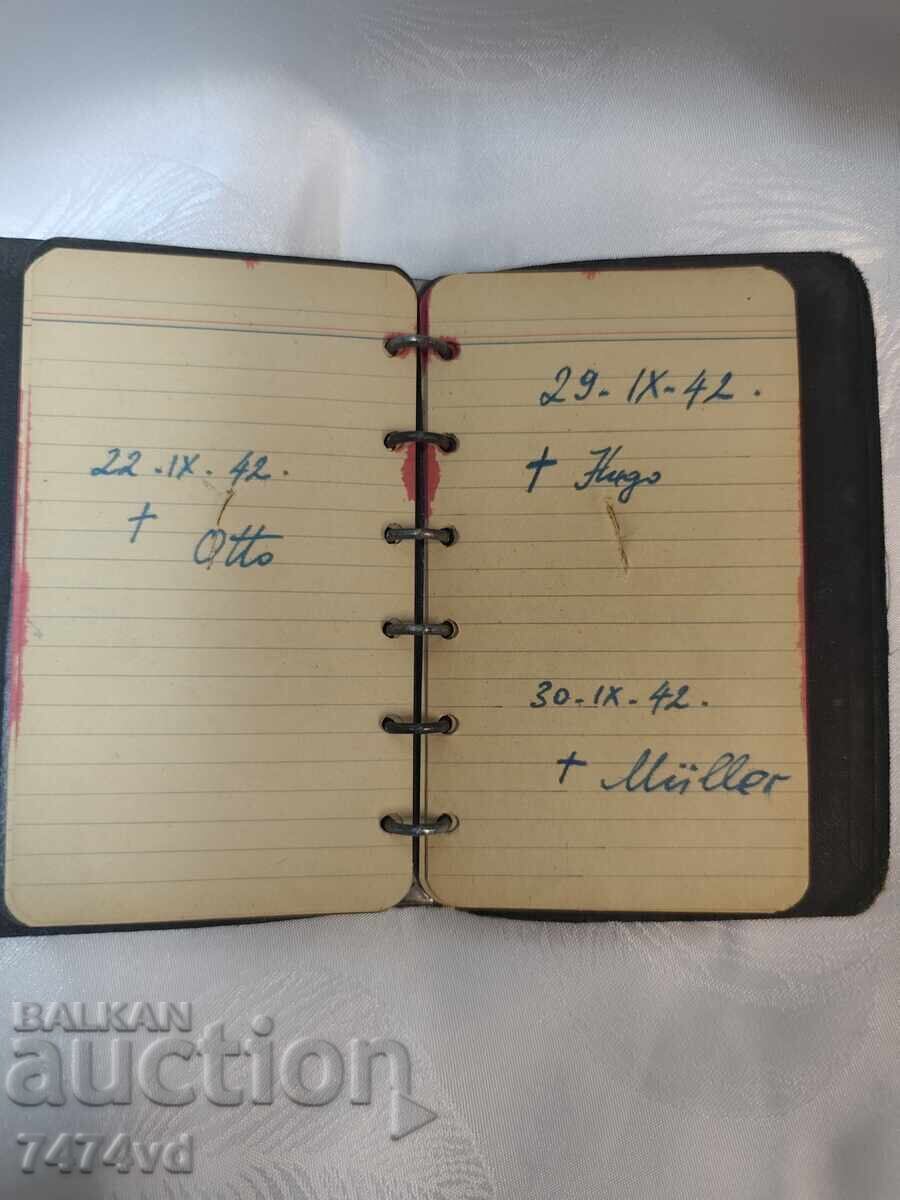 22-IX-42.
+
Otto
29-IX-42.
+ Hugo
30-IX-42.
+ Müller
BALKAN
auction
7474vd